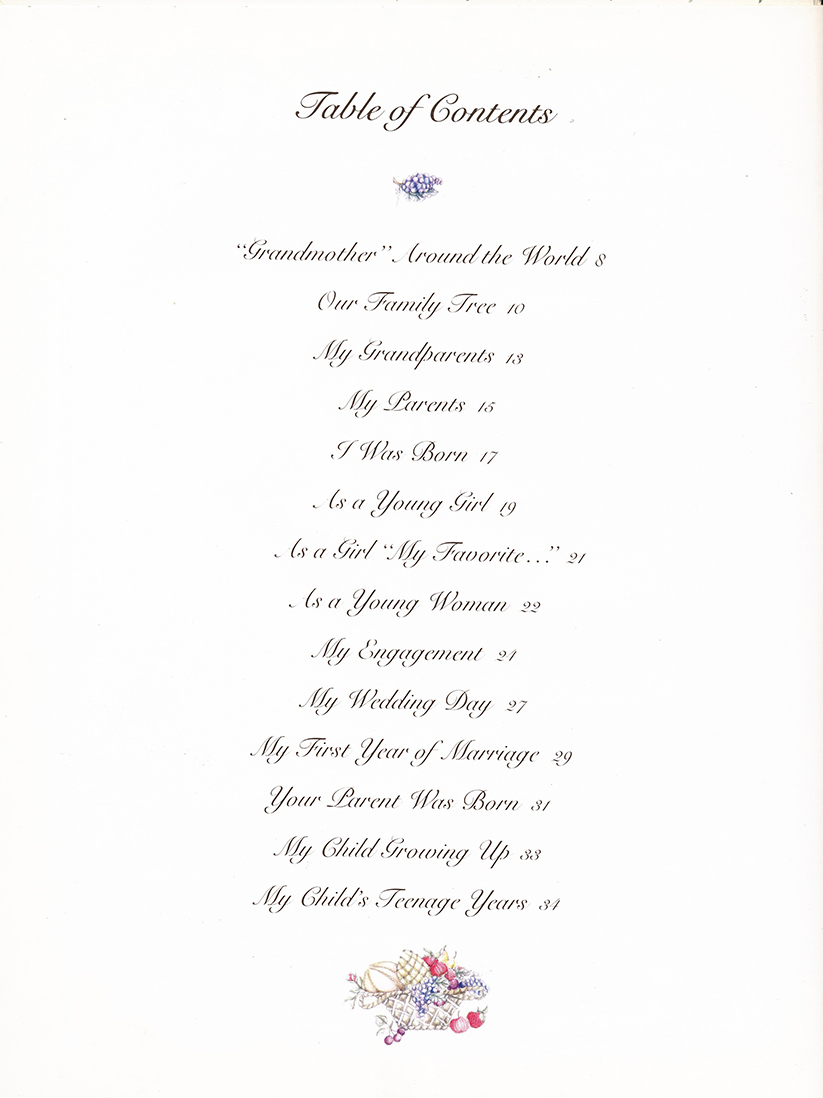 Table of Contents
“Grandmother” Around the World 8
Our Family Tree 10
My Grandparents 13
My Parents 15
I Was Born 17
As a Young Girl 19
As a Girl “My Favorite...” 21
As a Young Woman 22
My Engagement 24
My Wedding Day 27
My First Year of Marriage 29
Your Parent Was Born 31
My Child Growing Up 33
My Child’s Teenage Years 34